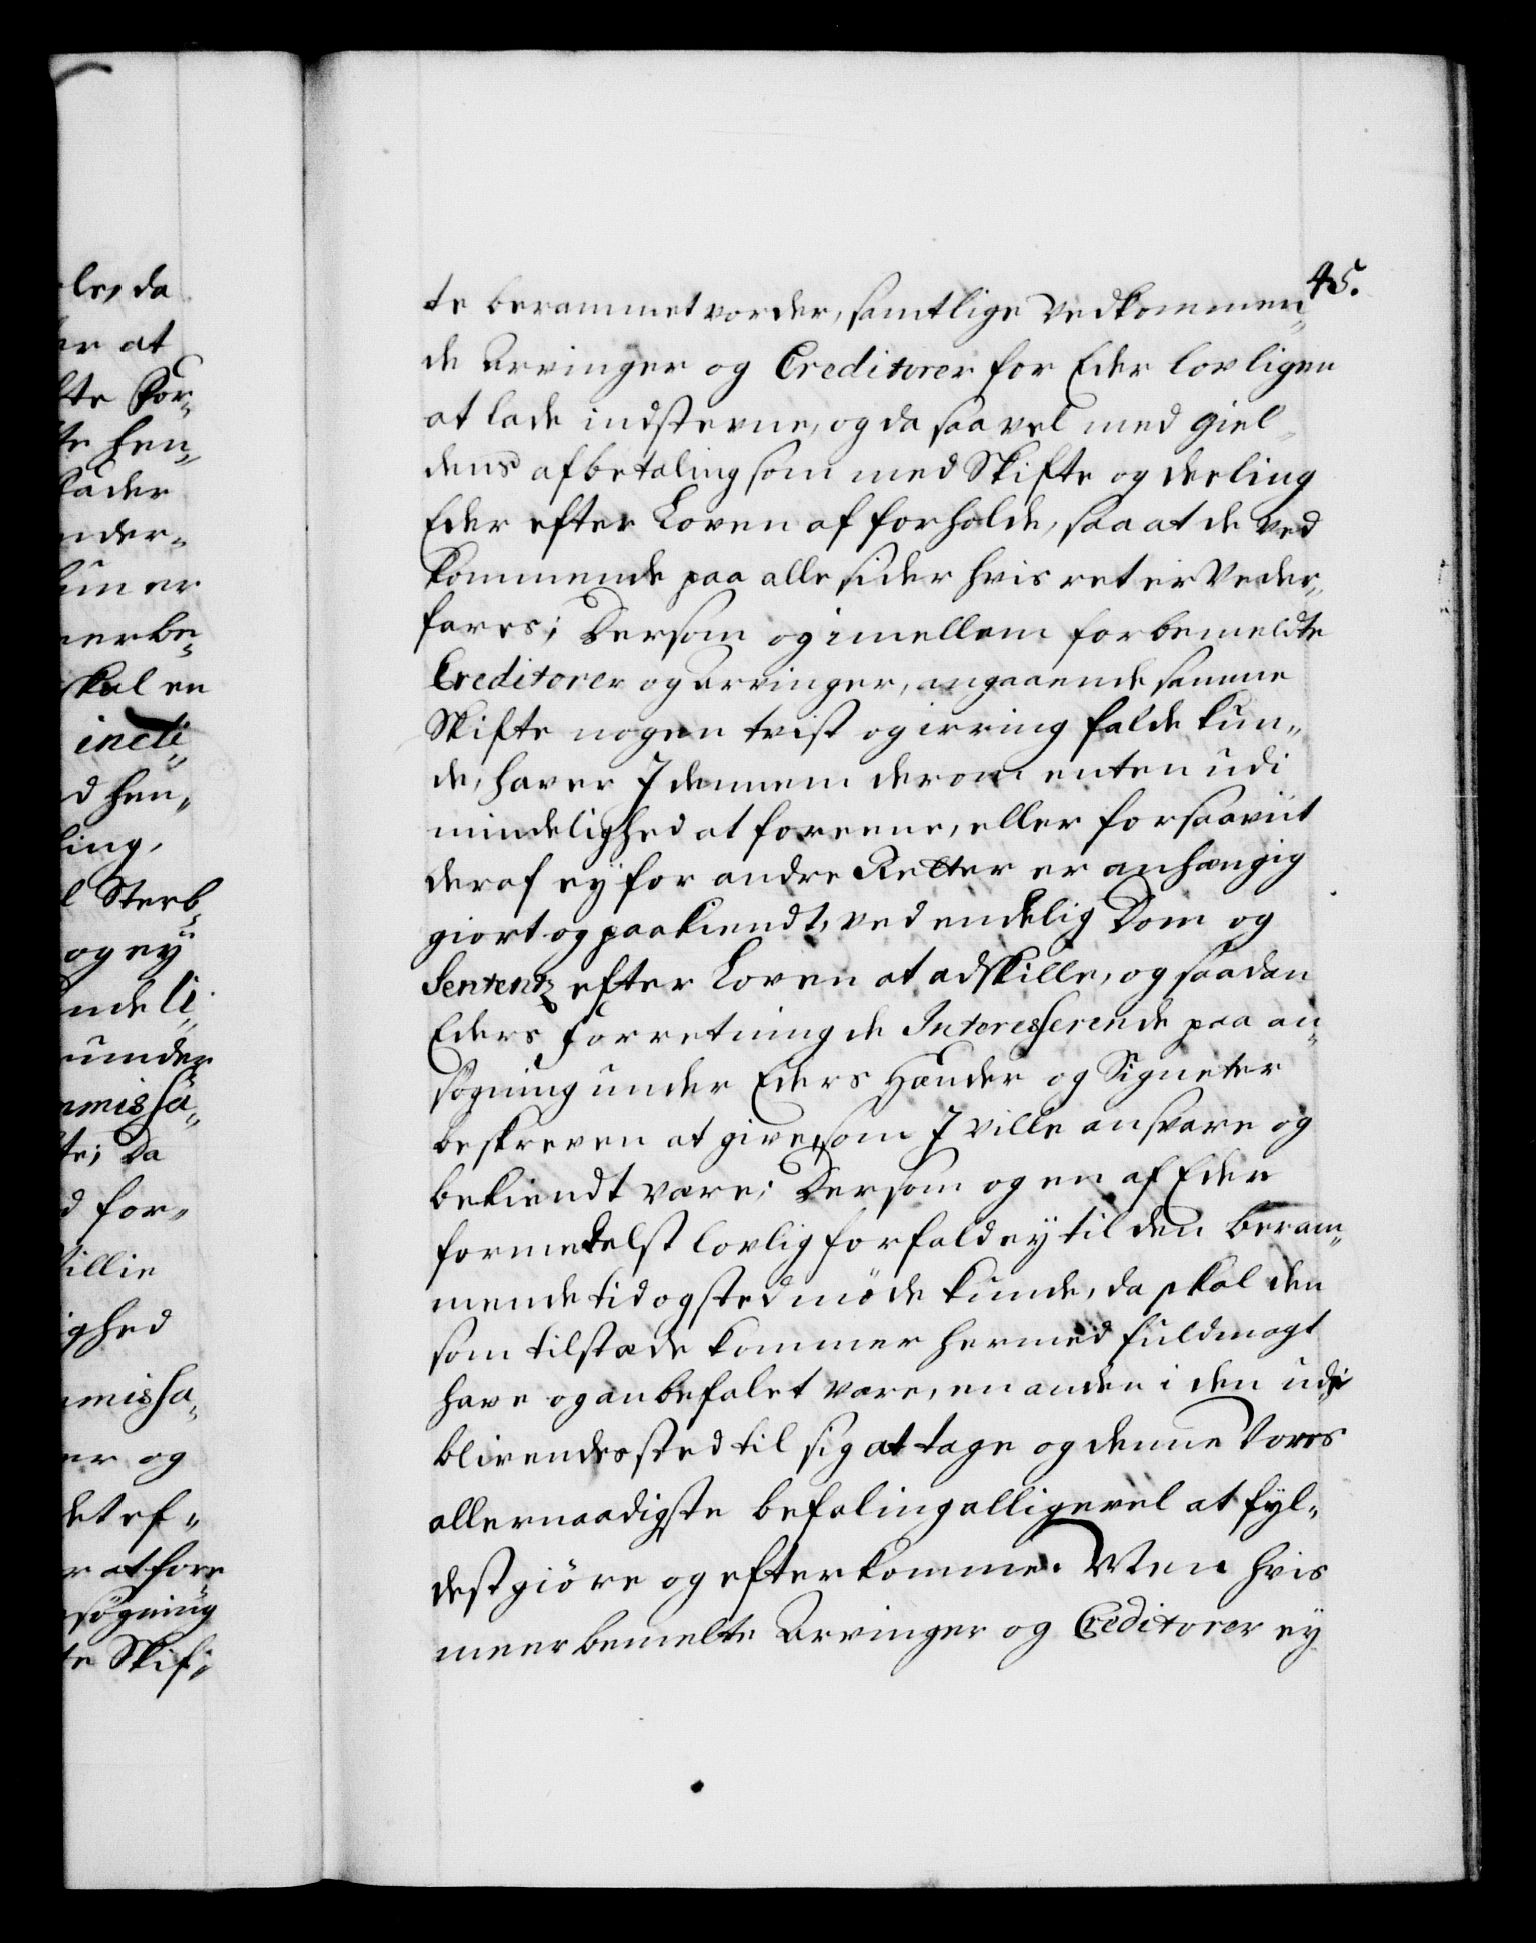 45.
te berammet vorder, samtlige Vedkommen„
de Arvinger og Creditorer for Eder lovligen
at lade indstevne, og da saavel med giel„
dens afbetaling som med Skifte og deeling
Eder efter Loven at forholde, saa at de Ved
kommende paa alle sider hvis ret er Veder„
fares; Dersom og imellem forbemeldte
Creditorer og Arvinger, angaaende samme
Skifte nogen tvist og irring falde kun„
de, haver I dennem derom enten udi
mindelighed at foreene, eller forsaaviit
deraf eÿ for andre Retter er anhængig
giort og paakiendt, ved endelig Dom og
Sententz efter Loven at adskille, og saadan
Eders forretning de Interesserende paa an„
søgning under Eders Hænder og Signeter
beskreven at give, som I ville ansvare og
bekiendt være; Dersom og en af Eder
formedelst lovlig forfald eÿ til den beram„
mende tid og sted møde kunde, da skal den
som tilstæde kommer hermed fuldmagt
have og anbefalet være, en anden i den udi
blivendes sted til sig at tage og denne Vores
allernaadigste befaling alligevel at fyl„
destgiöre og efterkomme. Men hvis
meerbemelte Arvinger og Creditorer eÿ
les, da
er at
te For„
te hen„
lader
nder„
er
er be„
skal en
incli„
d hen„
ling,
l Sterb„
og eÿ
nde li„
under
mmissa„
te; Da
d for„
Villie
ighed
mmissa„
er og
det ef„
r at fore
søgning
te Skif„